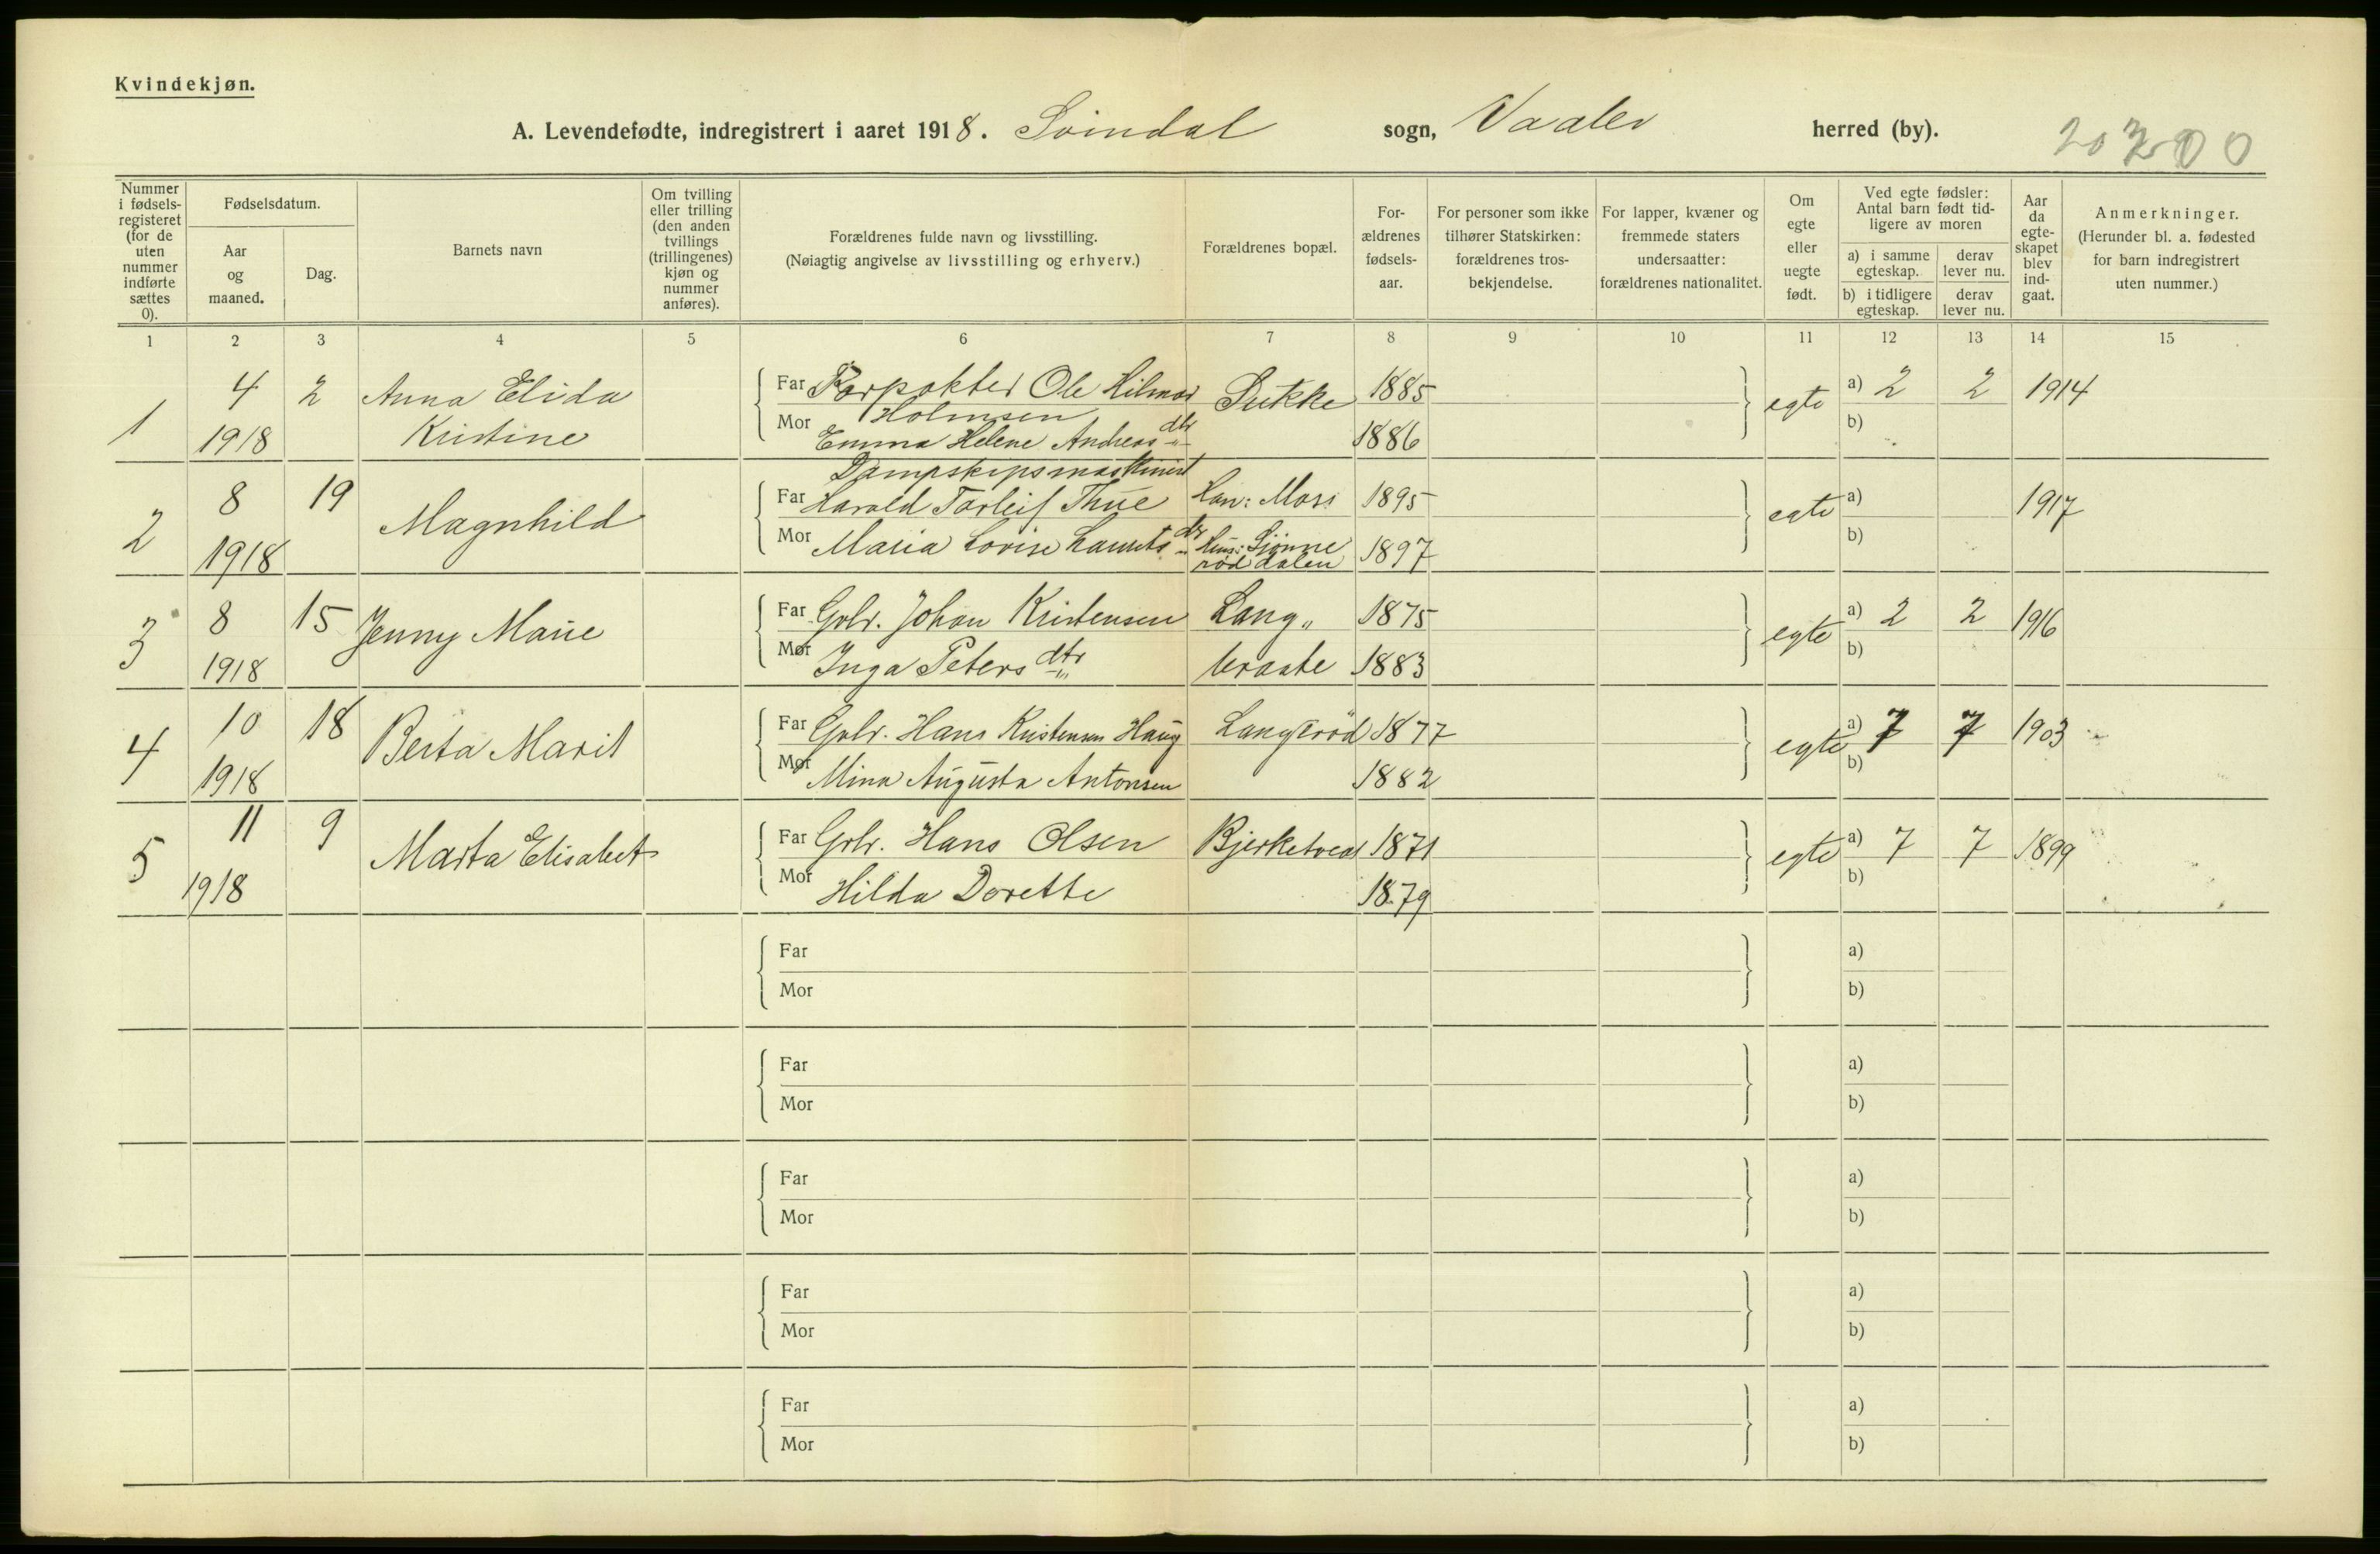 Kvindekjøn.
A. Levendefødte, indregistrert i aaret 1918. Svindal sogn, Vaaler herred (by).
Nummer i fødsels-registeret (for de uten nummer indførte sættes 0).
Fødselsdatum.
Aar og maaned.
Dag.
Barnets navn
Om tvilling eller trilling (den anden tvillings (trillingenes) kjøn og nummer anføres).
Forældrenes fulde navn og livsstilling.
(Nøiagtig angivelse av livsstilling og erhverv.)
Forældrenes bopæl.
For-ældrenes fødsels-aar.
For personer som ikke tilhører Statskirken: forældrenes tros-bekjendelse.
For lapper, kvæner og fremmede staters undersaatter: forældrenes nationalitet.
Om egte eller uegte født.
Ved egte fødsler: Antal barn født tid-ligere av moren
a) i samme egteskap. derav lever nu.
b) i tidligere egteskap. derav lever nu.
Aar da egte-skapet blev ind-gaat.
Anmerkninger.
(Herunder bl. a. fødested for barn indregistrert uten nummer.)
1 2 3 4 5 6 7 8 9 10 11 12 13 14 15
1 4 1918 2 Anna Elida Kristine
Far Forpakter Ole Hilmar Holmsen Sukke 1885 egte a) 2 2 1914
Mor Emma Helene Andreasdtr 1886 b)
2 8 1918 19 Magnhild
Dampskipsmaskinist
Far Harald Torleif Thue Han: Moss 1895 egte a) 1917
Mor Maria Lovise Lauritsdtr Hun: Sjønne rød dalen 1897 b)
3 8 1918 15 Jenny Marie
Far Gbr. Johan Kristensen Lang„ 1875 egte a) 2 2 1916
Mor Inga Petersdtr braate 1883 b)
4 10 1918 18 Berta Marit
Far Gbr. Hans Kristensen Haug Langerød 1877 egte a) 7 7 1903
Mor Mina Augusta Antonsen 1882 b)
5 11 1918 9 Marta Elisabet
Far Gbr. Hans Olsen Bjerketvedt 1871 egte a) 7 7 1899
Mor Hilda Dorette 1879 b)
Far a)
Mor b)
Far a)
Mor b)
Far a)
Mor b)
Far a)
Mor b)
Far a)
Mor b)